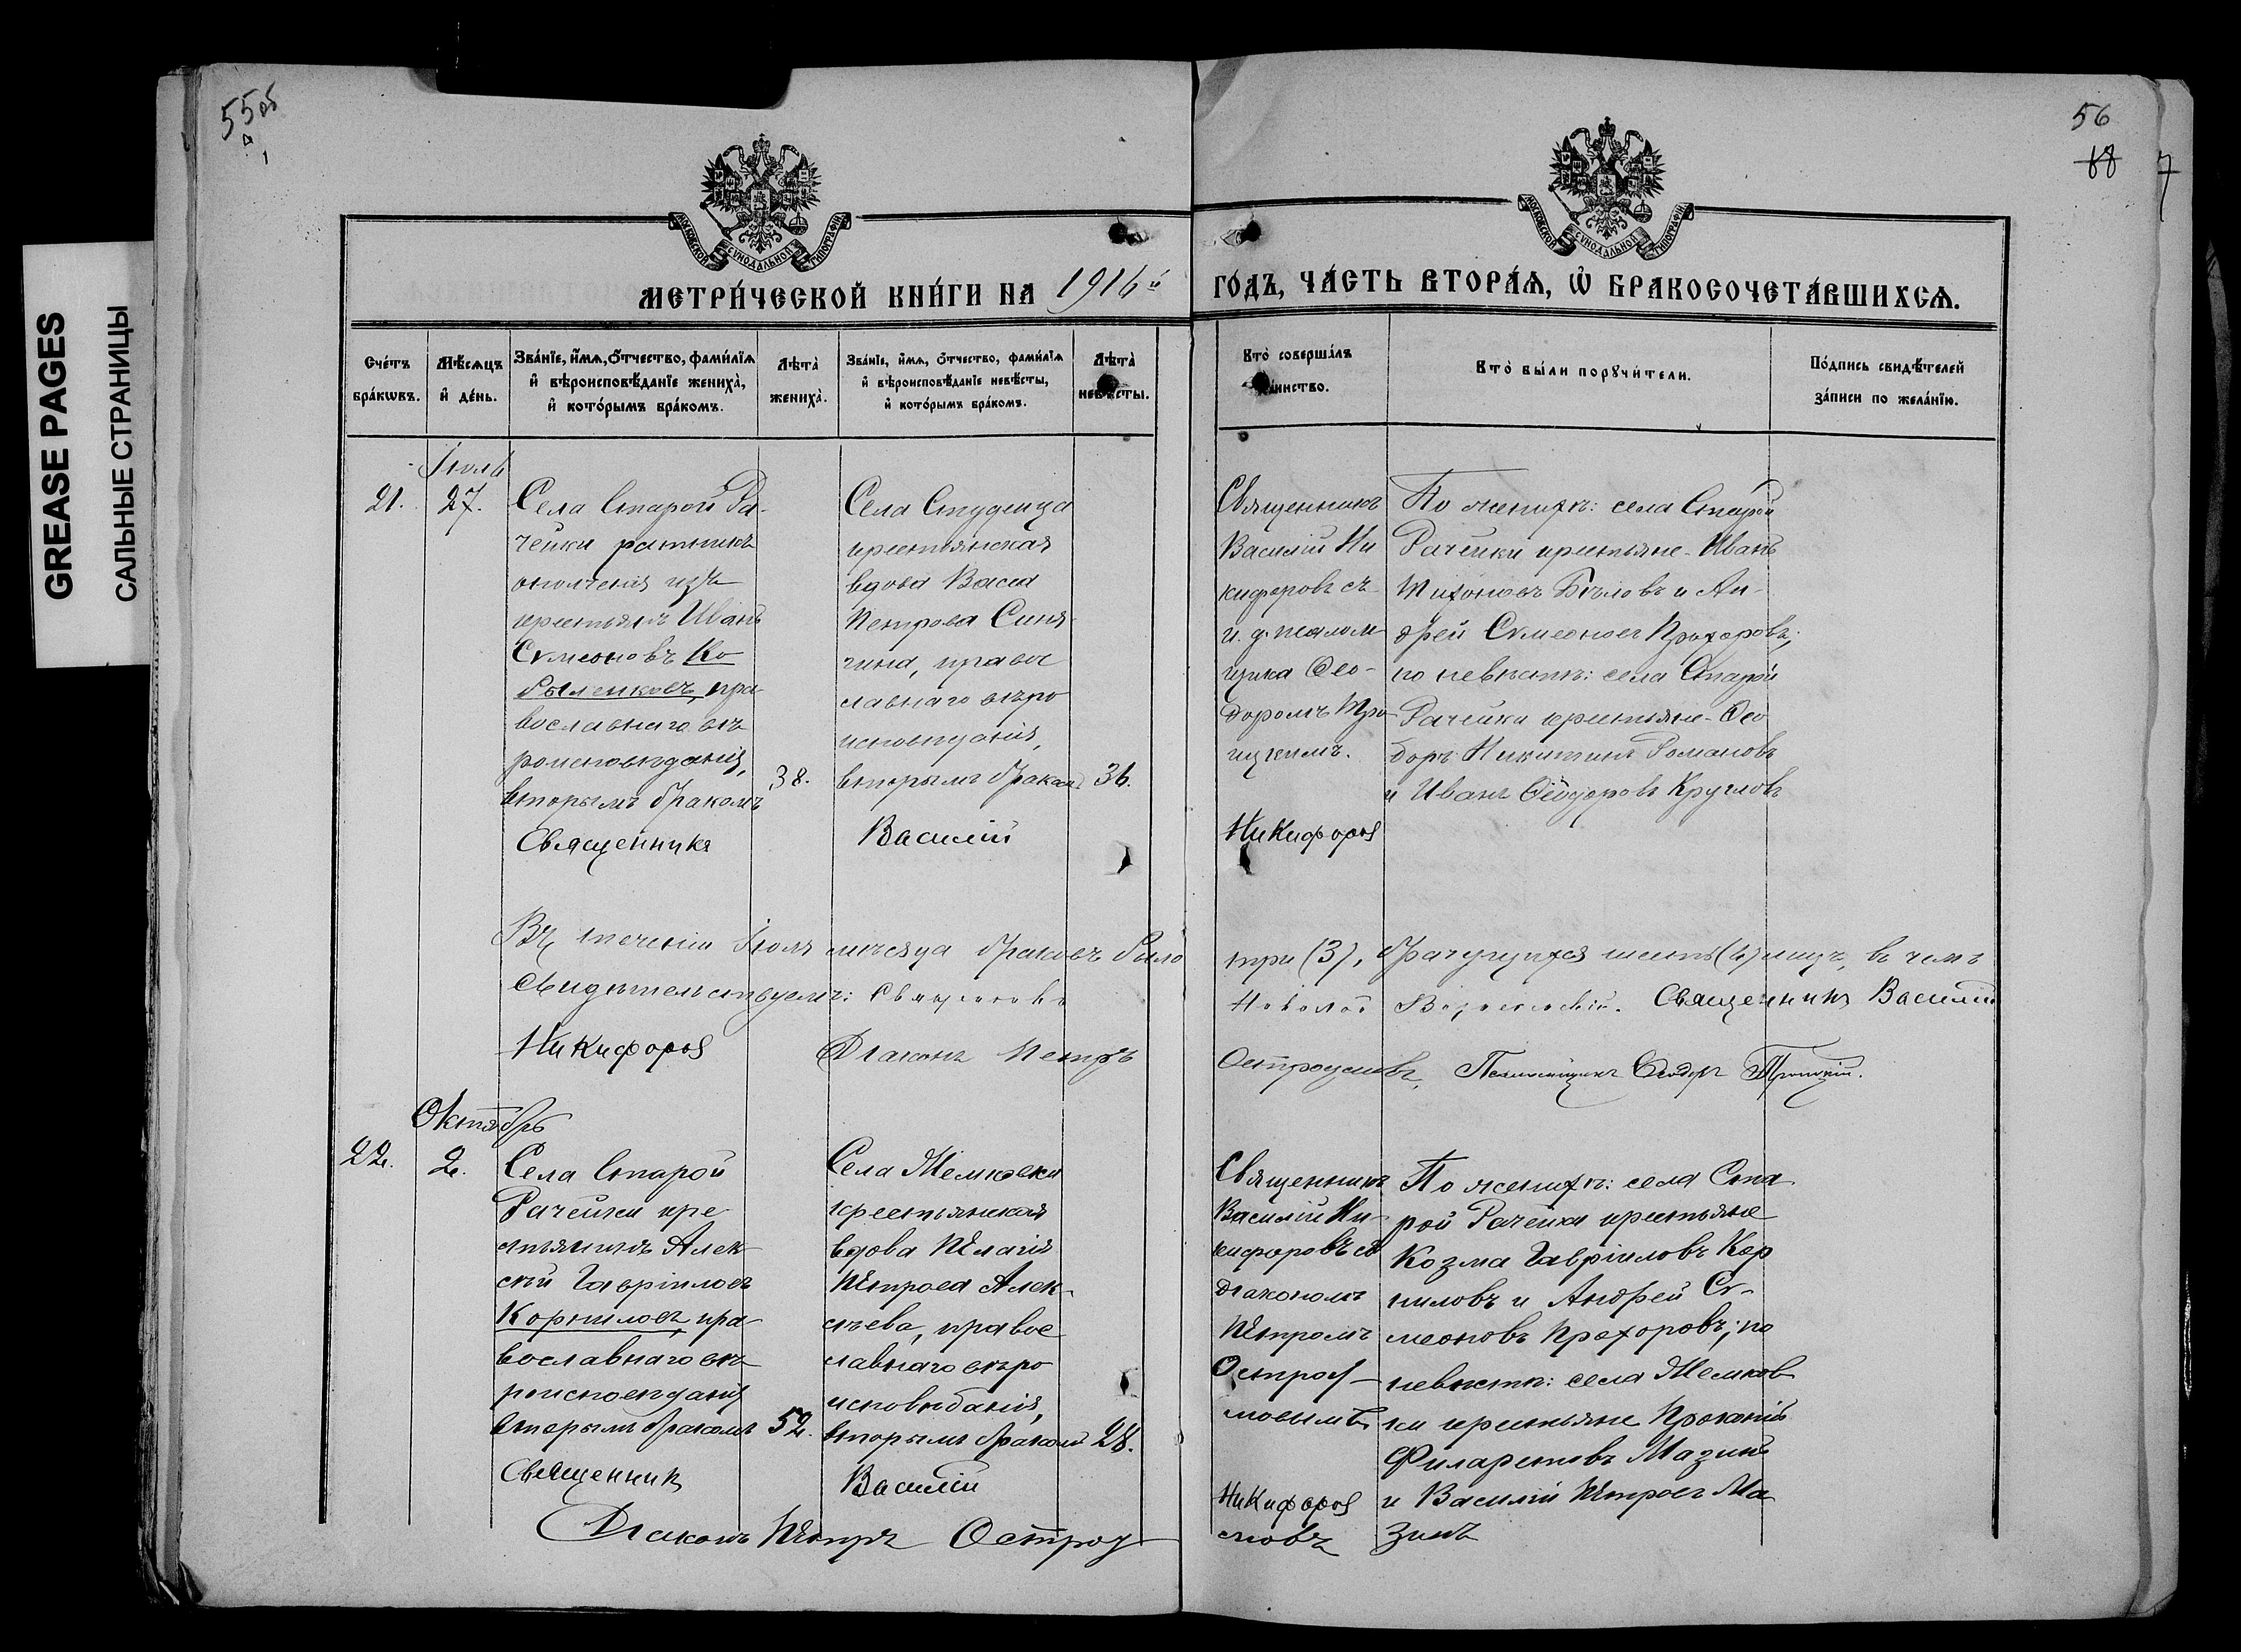 GREASE PAGES
САЛЬНЫЕ СТРАНИЦЫ
55об
56
88
7
МОСКОВСКОЙ СѴНОДАЛЬНОЙ ТИПОГРАФІИ
МОСКОВСКОЙ СѴНОДАЛЬНОЙ ТИПОГРАФІИ
МЕТРИ́ЧЕСКОЙ КНИ́ГИ НА 1916й
ГО́ДЪ, ЧА́СТЬ ВТОРА́Я, Ѡ҆ БРАКОСОЧЕТА́ВШИХСѦ.
Сче́тъ бра́кѡвъ.
Мѣ́сѧцъ и҆ де́нь.
Зва́нїе, и҆́мѧ, ѻ҆́тчество, фами́лїѧ и҆ вѣроисповѣ́данїе жениха̀, и҆ кото́рымъ бра́комъ.
Лѣта̀ жениха̀.
Зва́нїе, и҆́мѧ, ѻ҆́тчество, фами́лїѧ и҆ вѣроисповѣ́данїе невѣ́сты, и҆ кото́рымъ бра́комъ.
Лѣта̀ невѣ́сты.
Кто̀ соверша́лъ та́инство.
Кто̀ бы́ли порꙋчи́тели.
По́дпись свидѣ́телей за́писи по жела́нїю.
Іюль
21.
27.
Села Старой Ра-
чейки ратникъ
ополченія изъ
крестьянъ Иванъ
Сѵмеоновъ Ко
быленковъ, пра-
вославнаго вѣ
роисповѣданія,
вторымъ бракомъ
38.
Села Студенца
крестьянская
вдова Васса
Петрова Синя
гина, право
славнаго вѣро
исповѣданія,
вторымъ бракомъ
36.
Священникъ
Василій Ни
кифоровъ съ
и. д. псалом
щика Ѳео-
доромъ Тро
ицкимъ.
По женихѣ: села Старой
Рачейки крестьяне - Иванъ
Тихоновъ Бѣловъ и Ан-
дрей Сѵмеоновъ Прохоровъ;
по невѣстѣ: села Старой
Рачейки крестьяне - Ѳео
доръ Никитинъ Романовъ
и Иванъ Ѳеодоровъ Кругловъ
Священникъ
Василій
Никифоровъ
Въ теченіи Іюля мѣсяца браковъ было три (3), брачущихся шесть (6) лицъ, въ чемъ
свидѣтельствуемъ: Священникъ Николай Вознесенскій. Священникъ Василій
Никифоровъ Діаконъ Петръ Остроумовъ, Псаломщикъ Ѳеодоръ Троицкій.
Октябрь
22.
2.
Села Старой
Рачейки кре
стьянинъ Алек
сѣй Гавріиловъ
Корниловъ, пра-
вославнаго вѣ
роисповѣданія
вторымъ бракомъ
52.
Села Жемковки
крестьянская
вдова Пелагія
Петрова Алек-
сѣева, право
славнаго вѣро
исповѣданія,
вторымъ бракомъ
28.
Священникъ
Василій Ни-
кифоровъ съ
діакономъ
Петромъ
Остроу-
мовымъ
По женихѣ: села Ста
рой Рачейки крестьяне
Козма Гавріиловъ Кор
ниловъ и Андрей Сѵ-
меоновъ Прохоровъ; по
невѣстѣ: села Жемков
ки крестьяне Прокопій
Филаретовъ Мазинъ
и Василій Петровъ Ма
зинъ
Священникъ
Василій
Никифоровъ
Діаконъ Петръ Остроу
мовъ